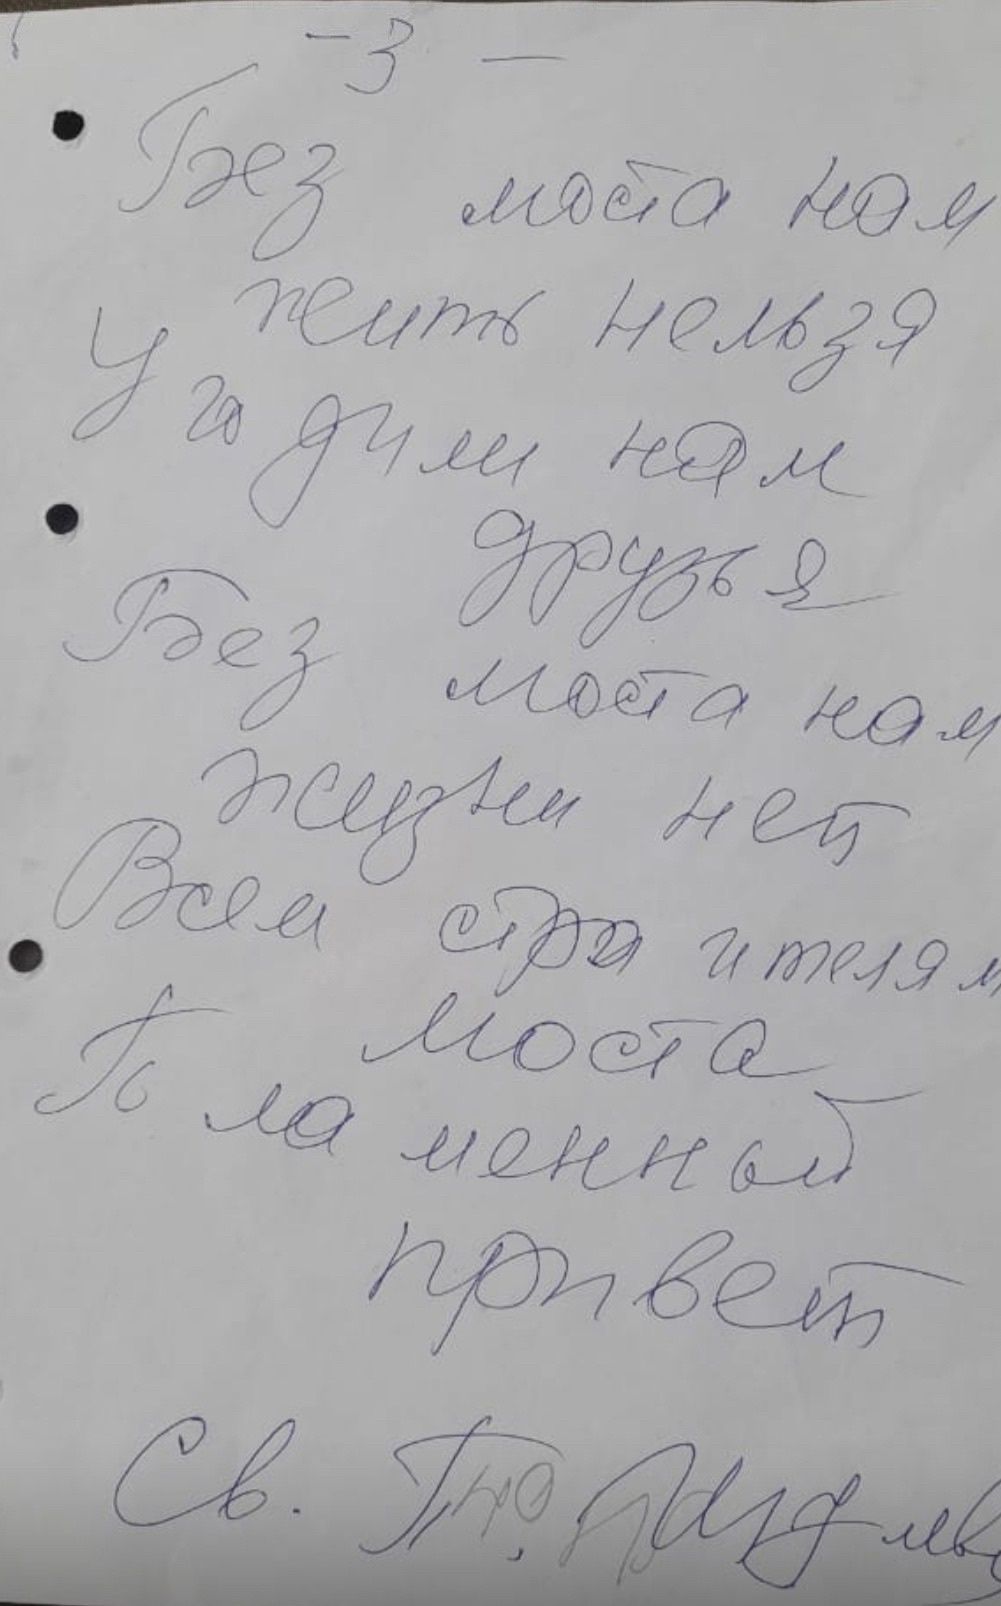 - 3 -
Без моста нам
жить нельзя
Угодили нам
друзья
Без моста нам
жизни нет
Всем строителям
моста
Пламенный
привет
Св.